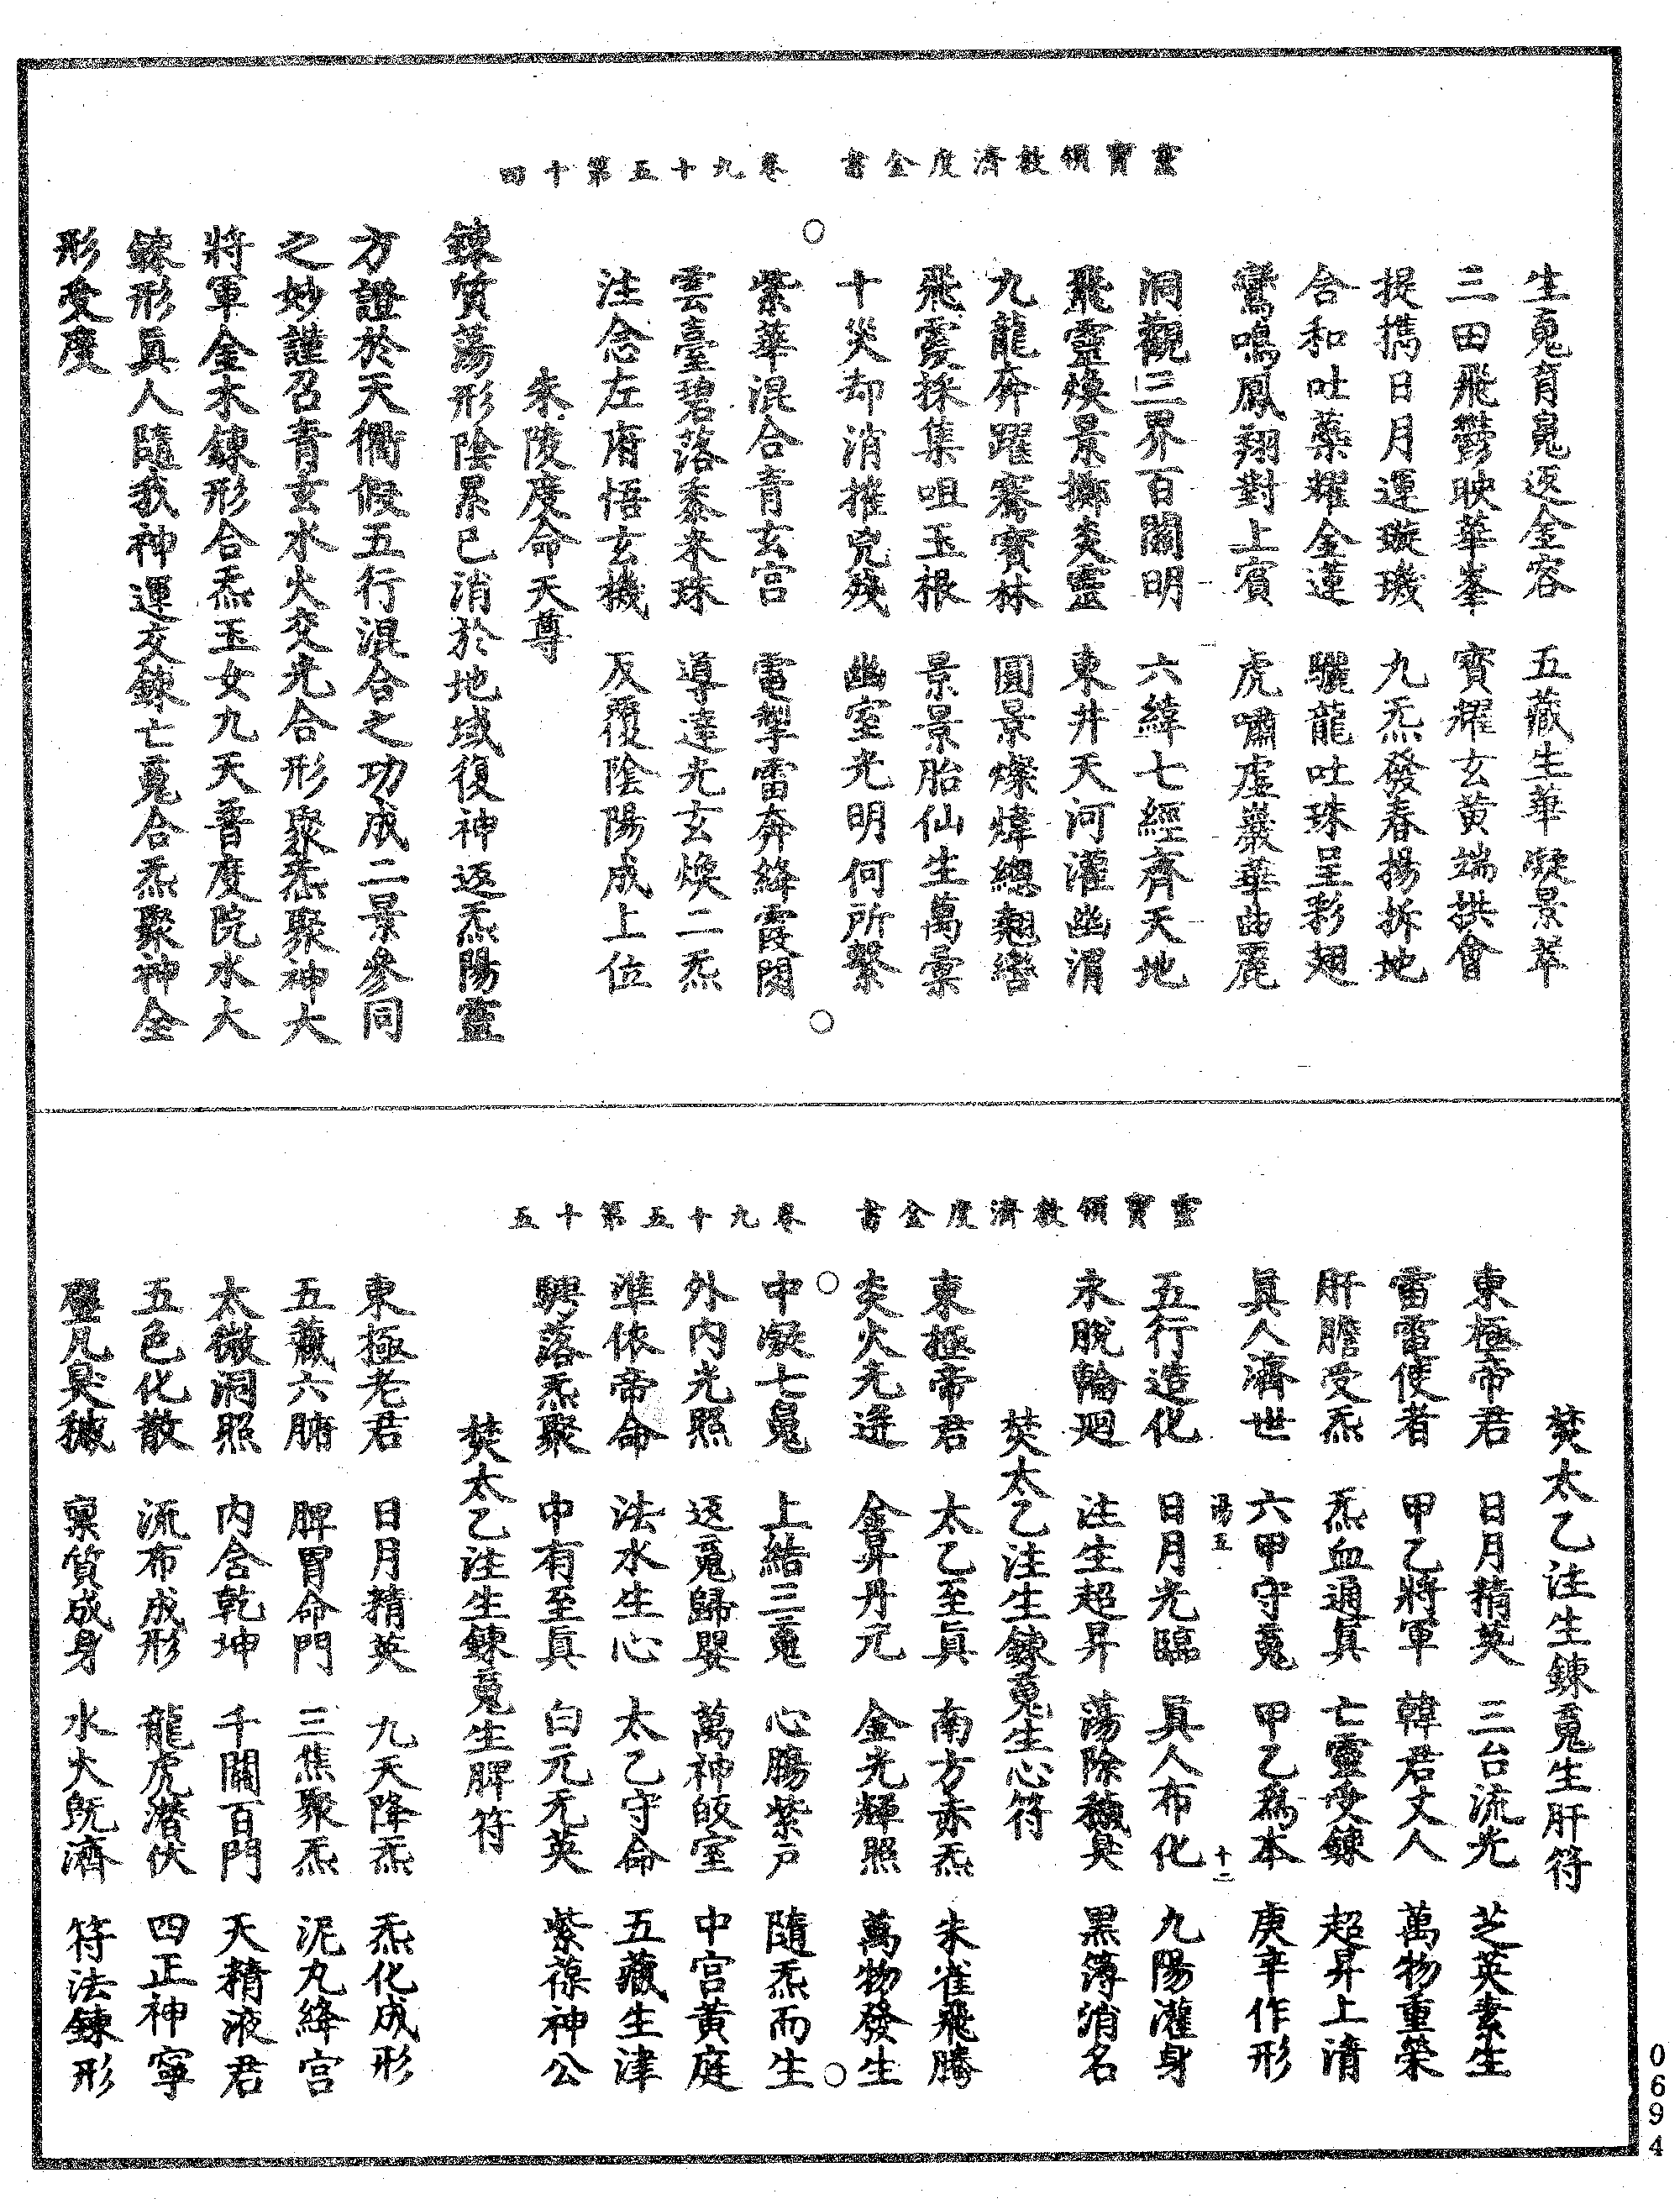 靈寶領教濟度金書　卷九十五第十四
生魂育魄返金容　五藏生華凝景萃
三田飛鬱映華峯　寶耀玄黃端拱會
提攜日月運璇璣　九炁發春揚拆地
合和吐藥耀金蓮　驪龍吐珠呈彩翅
鸞鳴鳳翔對上賓　虎嘯虛巖華曲麗
洞觀三界百關明　六緯七經齊天地
飛靈煥景擲炎靈　東井天河灌幽渭
九龍奔躍騫寶林　圓景燦煒總翹轡
飛霞採集咀玉根　景景胎仙生萬彙
十災却消摧兇殘　幽室光明何所繫
紫華混合青玄宮　電掣雷奔絳霞閟
雲臺碧落黍米珠　導達光玄煥二炁
注念左府悟玄機　反覆陰陽成上位
朱陵度命天尊
鍊質蕩形陰累已消於地域復神返炁陽靈
方證於天衢假五行混合之功成二景參同
之妙謹召青玄水火交光合形聚炁聚神大
將軍金木鍊形合炁玉女九天普度院水火
鍊形眞人隨我神運交鍊亡魂合炁聚神全
形受度
靈寶領教濟度金書　卷九十五第十五
焚太乙注生鍊魂生肝符
東極帝君　日月精英　三台流光　芝英素生
雷電使者　甲乙將軍　韓君丈人　萬物重榮
肝膽受炁　炁血通眞　亡靈受鍊　超昇上清
眞人濟世　六甲守魂　甲乙爲本　庚辛作形
湯五　十二
五行造化　日月光臨　眞人布化　九陽灌身
永脫輪迴　注生超昇　蕩除穢臭　黑簿消名
焚太乙注生鍊魂生心符
東極帝君　太乙至眞　南方赤炁　朱雀飛騰
炎火光迸　金昇丹元　金光輝照　萬物發生
中凝七魄　上結三魂　心腸紫戶　隨炁而生
外內光照　返魂歸嬰　萬神皎室　中宮黃庭
準依帝命　法水生心　太乙守命　五藏生津
騁落炁聚　中有至眞　白元无英　紫葆神公
焚太乙注生鍊魂生脾符
東極老君　日月精英　九天降炁　炁化成形
五藏六腑　脾胃命門　三焦聚炁　泥丸絳宮
太微洞照　內含乾坤　千關百門　天精液君
五色化散　流布成形　龍虎潛伏　四正神寧
塵凡臭穢　稟質成身　水火既濟　符法鍊形
0694